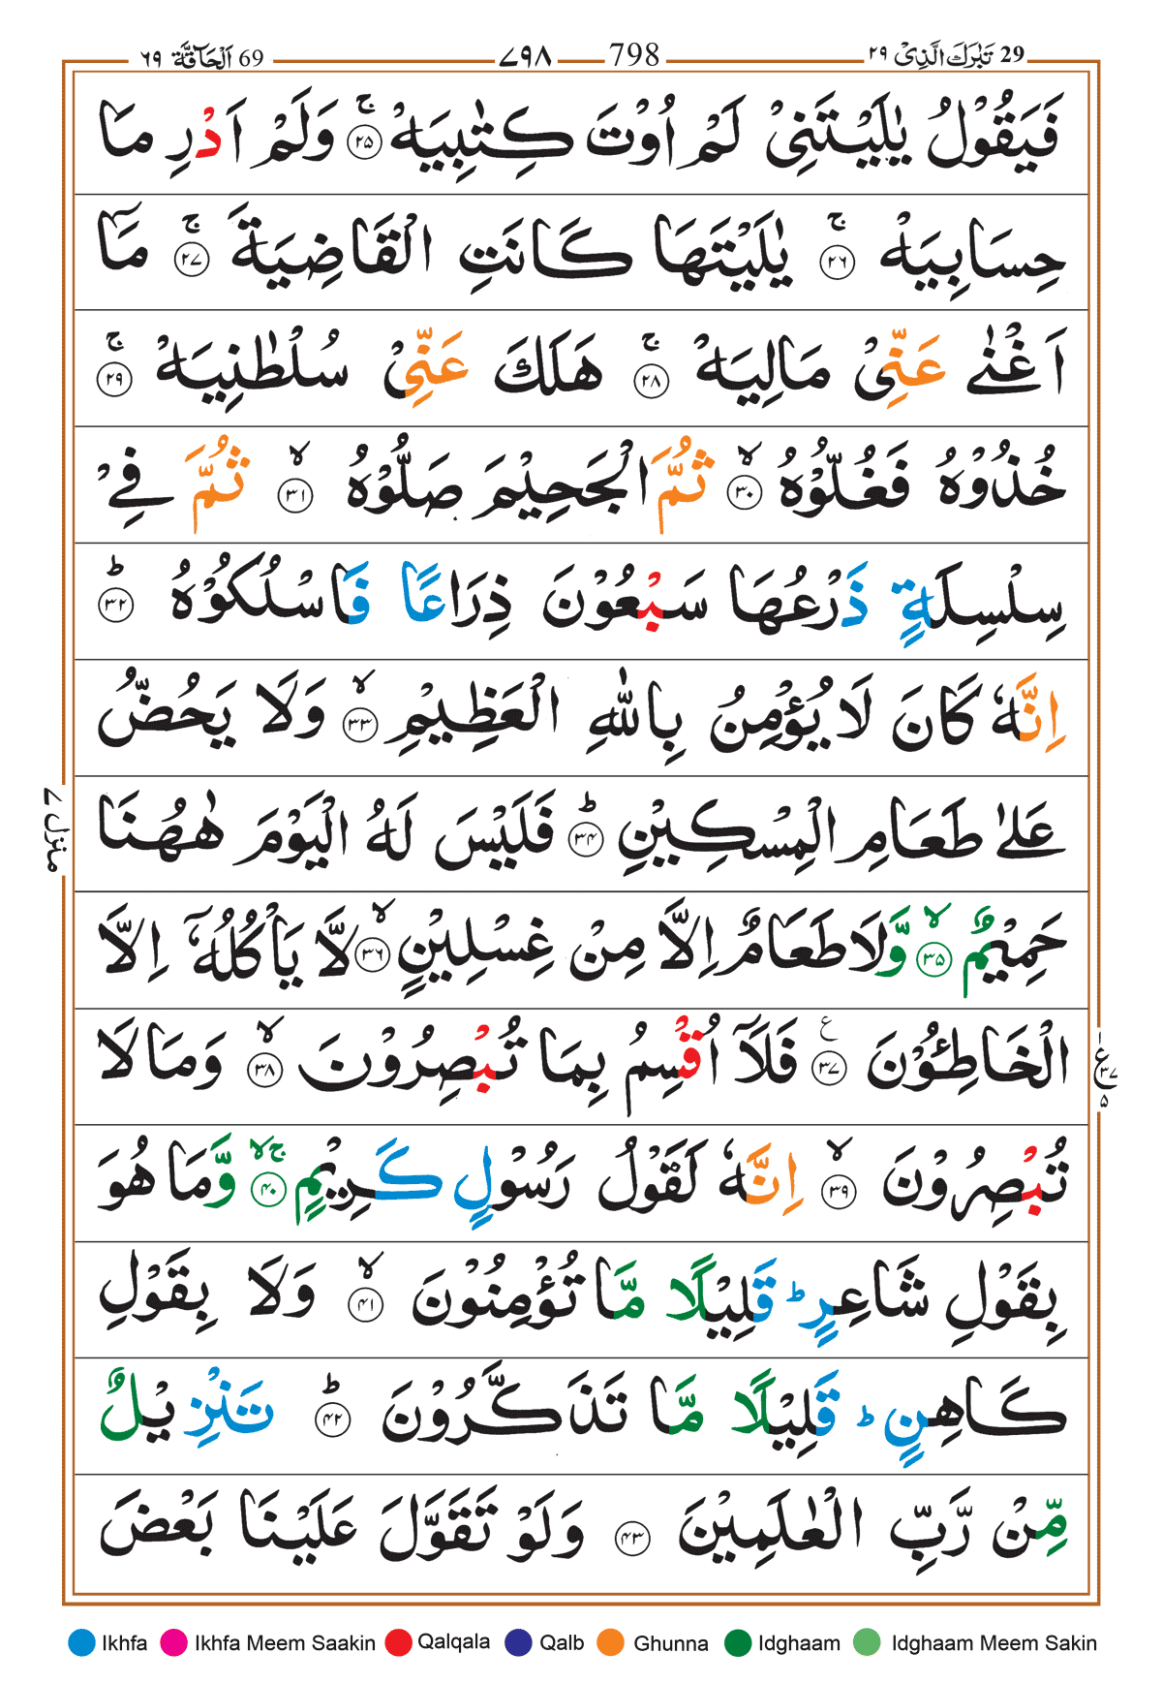 29 تَبٰرَكَ الَّذِىْ ٢٩ 798 ٧٩٨ 69 اَلْحَآقَّة ٦٩
فَيَقُوْلُ يٰلَيْتَنِىْ لَمْ اُوْتَ كِتٰبِيَهْ ۚ ٢٥ وَلَمْ اَدْرِ مَا
حِسَابِيَهْ ۚ ٢٦ يٰلَيْتَهَا كَانَتِ الْقَاضِيَةَ ۚ ٢٧ مَآ
اَغْنٰى عَنِّىْ مَالِيَهْ ۚ ٢٨ هَلَكَ عَنِّىْ سُلْطٰنِيَهْ ۚ ٢٩
خُذُوْهُ فَغُلُّوْهُ ۙ ٣٠ ثُمَّ الْجَحِيْمَ صَلُّوْهُ ۙ ٣١ ثُمَّ فِىْ
سِلْسِلَةٍ ذَرْعُهَا سَبْعُوْنَ ذِرَاعًا فَاسْلُكُوْهُ ؕ ٣٢
اِنَّهٗ كَانَ لَا يُؤْمِنُ بِاللّٰهِ الْعَظِيْمِ ۙ ٣٣ وَلَا يَحُضُّ
عَلٰى طَعَامِ الْمِسْكِيْنِ ؕ ٣٤ فَلَيْسَ لَهُ الْيَوْمَ هٰهُنَا
حَمِيْمٌ ۙ ٣٥ وَّلَا طَعَامٌ اِلَّا مِنْ غِسْلِيْنٍ ۙ ٣٦ لَّا يَاْكُلُهٗۤ اِلَّا
الْخَاطِـُٔوْنَ ٣٧ ع فَلَاۤ اُقْسِمُ بِمَا تُبْصِرُوْنَ ۙ ٣٨ وَمَا لَا
تُبْصِرُوْنَ ۙ ٣٩ اِنَّهٗ لَقَوْلُ رَسُوْلٍ كَرِيْمٍ ۚۙ ٤٠ وَّمَا هُوَ
بِقَوْلِ شَاعِرٍ ؕ قَلِيْلًا مَّا تُؤْمِنُوْنَ ۙ ٤١ وَلَا بِقَوْلِ
كَاهِنٍ ؕ قَلِيْلًا مَّا تَذَكَّرُوْنَ ؕ ٤٢ تَنْزِيْلٌ
مِّنْ رَّبِّ الْعٰلَمِيْنَ ٤٣ وَلَوْ تَقَوَّلَ عَلَيْنَا بَعْضَ
منزل ٧
ع ٣٧ ٥
Ikhfa Ikhfa Meem Saakin Qalqala Qalb Ghunna Idghaam Idghaam Meem Sakin